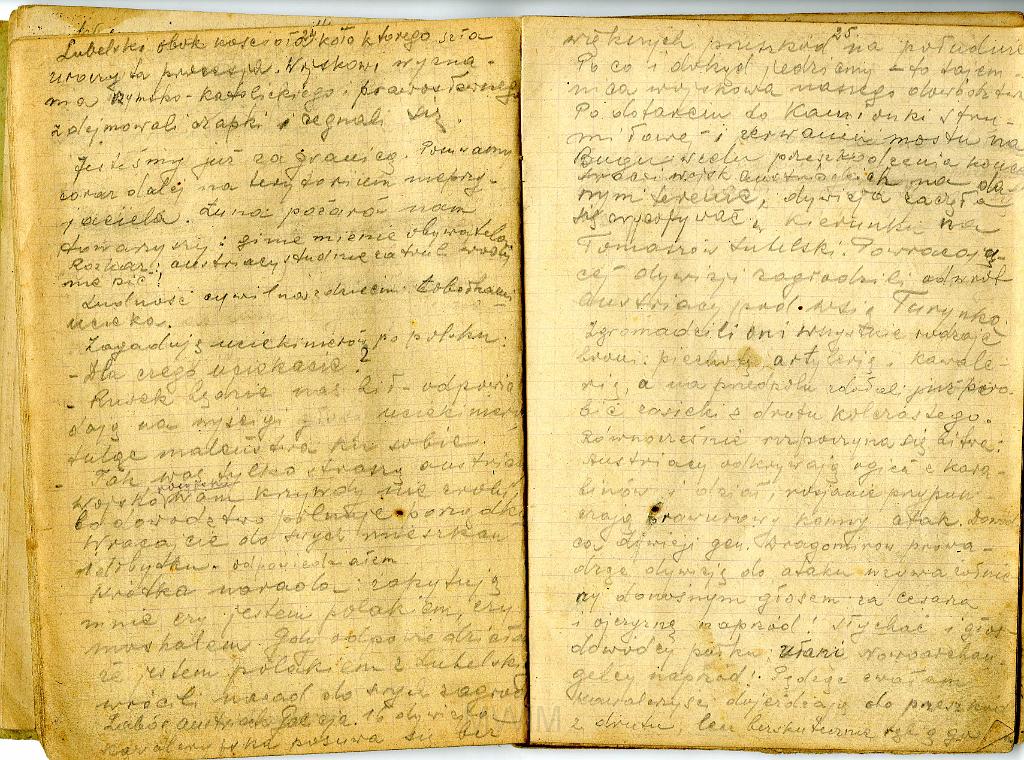 24
Lubelski obok kościoła koło którego szła
uroczysta procesja. Wojskowi wyzna-
nia rzymsko-katolickiego i prawosławnego
zdejmowali czapki i żegnali się.
Jesteśmy już za granicą. Posuwamy
coraz dalej na terytorium nieprzy-
jaciela. Łuna pożarów nam
towarzyszy: ginie mienie obywatela.
Rozkaz: austriacy studnie zatruli wody
nie pić!
Ludność cywilna z dziećmi tobołkami
ucieka.
Zagaduję uciekinierów po polsku:
- Dla czego uciekacie?
- Rusek będzie nas bił - odpowia
dają na wyścigi głosy uciekinierów
tuląc maleństwa ku sobie.
- Tak was tylko straszą austriacy
Wojsko rosyjskie wam krzywdy nie zrobi,
bo dowództwo pilnuje porządku
Wracajcie do swych mieszkań
i dobytku. odpowiedziałem
Krótka narada: zapytują
mnie czy jestem polakiem, czy
moskalem. Gdy odpowiedziałem
że jestem polakiem z Lubelski
wrócili nazad do swych zagród
16 dywizja
kawaleryjska posuwa się bez
25
większych przeszkód na południe
Po co i dokąd jedziemy - to tajem-
nica wojskowa naszego dowództwa
Po dotarciu do Kamionki Stru-
miłowej i zerwaniu mostu na
Bugu wielu
wojsk austriackich na da
nym terenie, dywizja zaczęła
się wycofywać w kierunku na
Tomaszów Lubelski. Powracają-
cej dywizji zagrodzili odwrót
austriacy pod wsią Turynka
Zgromadzili oni wszystkie rodzaje
broni: piechotę, artylerię, kawale-
rię, a na przedpolu zdołali już poro-
bić zasieki z drutu kolczastego.
Równocześnie rozpoczyna się bitwa:
Austriacy odkrywają ogień z kara-
binów i dział, rosjanie przypusz-
czają brawurowy konny atak. Dowód
ca dywizji gen. Dragomirow prowa-
dząc dywizję do ataku wzywa żołnie
rzy donośnym głosem za cesarza
i ojczyznę naprzód! Słychać i głos
dowódcy pułku, ułani Nowoarchan-
gielcy naprzód! Pędząc cwałem
kawalerzyści dojeżdżają do przeszkód
z drutu, lecz bezskutecznie